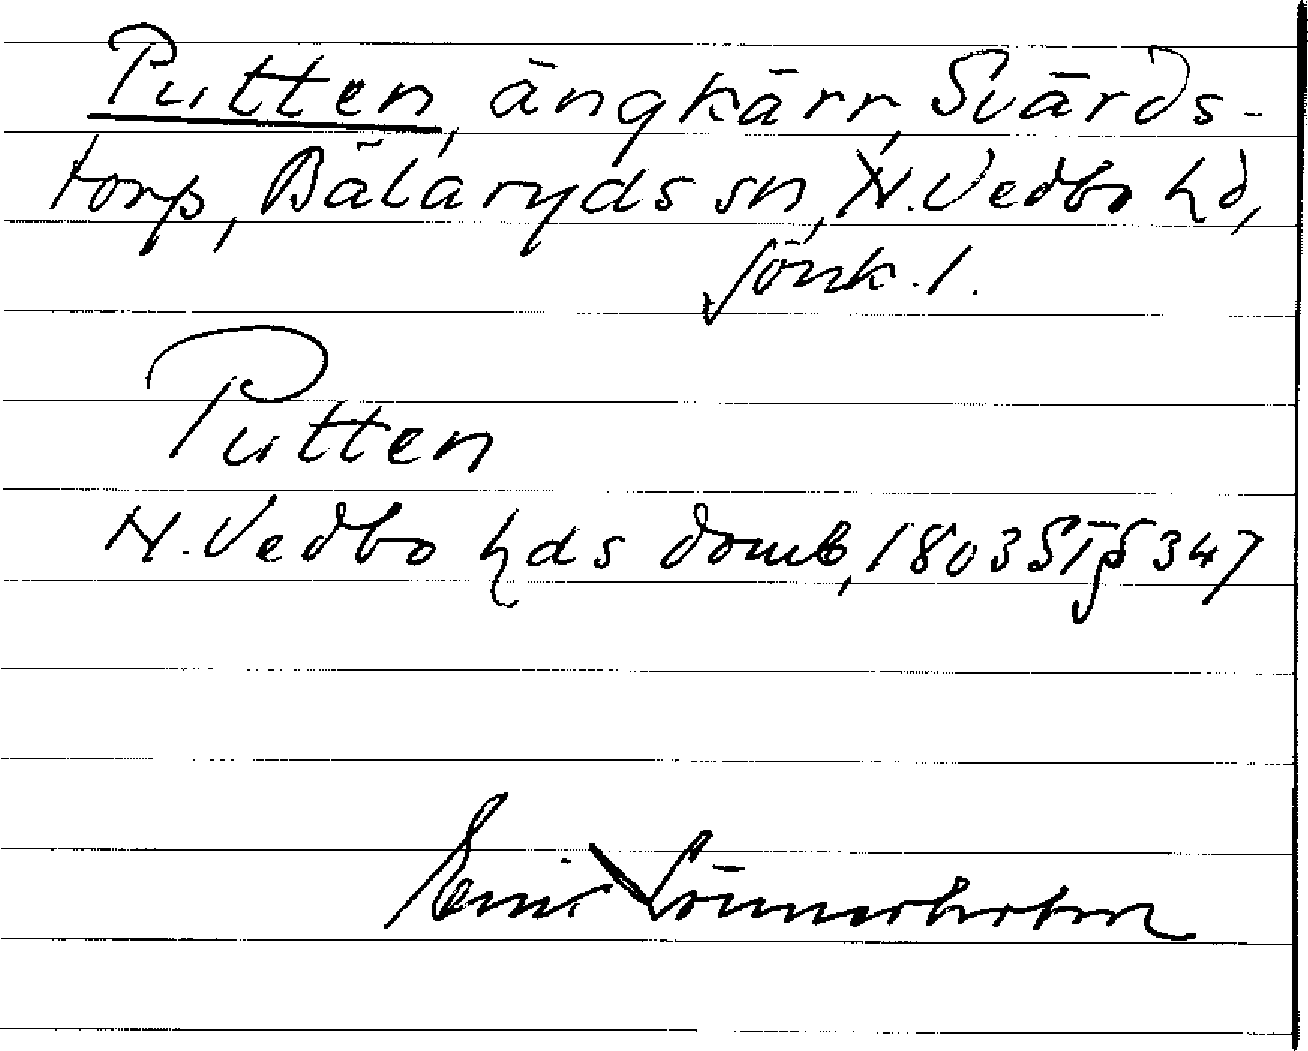 Putten, ängkärr, Svärds-
torp, Bälaryds sn, N. Vedbo hd,
Jönk. l.
Putten
N. Vedbo hds domb, 1803 ST § 347
Emil